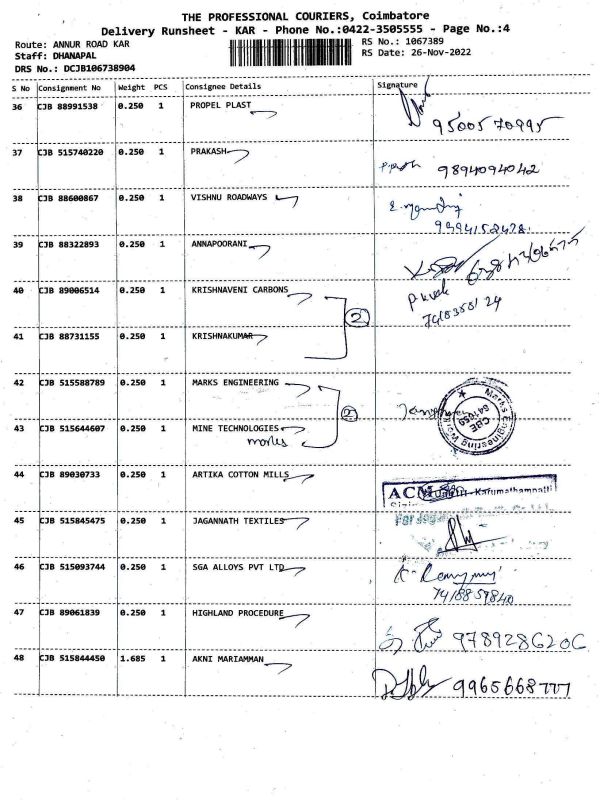 THE PROFESSIONAL COURIERS, Coimbatore
Delivery Runsheet - KAR - Phone No.:0422-3505555 - Page No.:4
Route: ANNUR ROAD KAR RS No.: 1067389
Staff: DHANAPAL RS Date: 26-Nov-2022
DRS No.: DCJB106738904
S No Consignment No Weight PCS Consignee Details Signature
36 CJB 88991538 0.250 1 PROPEL PLAST
9500570995
37 CJB 515740220 0.250 1 PRAKASH 9894094042
38 CJB 88600867 0.250 1 VISHNU ROADWAYS
39 CJB 88322893 0.250 1 ANNAPOORANI
40 CJB 89006514 0.250 1 KRISHNAVENI CARBONS
2
41 CJB 88731155 0.250 1 KRISHNAKUMAR
42 CJB 515588789 0.250 1 MARKS ENGINEERING
2
43 CJB 515644607 0.250 1 MINE TECHNOLOGIES
marks
Marks Engineering Works
CBE
641059
44 CJB 89030733 0.250 1 ARTIKA COTTON MILLS
ACM Karumathampatti
45 CJB 515845475 0.250 1 JAGANNATH TEXTILES
46 CJB 515093744 0.250 1 SGA ALLOYS PVT LTD
7418859840
47 CJB 89061839 0.250 1 HIGHLAND PROCEDURE
48 CJB 515844450 1.685 1 AKNI MARIAMMAN
9965668777